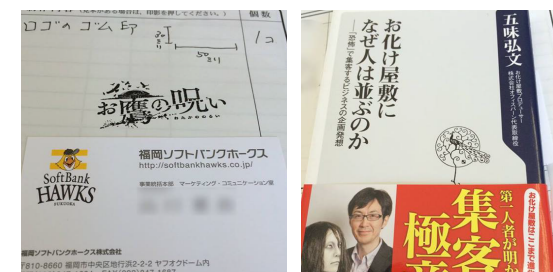 個数
ロゴのゴム印
30ミリ
50ミリ
1コ
お鷹の呪い
SoftBank
HAWKS
FUKUOKA
福岡ソフトバンクホークス
http://softbankhawks.co.jp/
事業統括本部 マーケティング・コミュニケーション室
福岡ソフトバンクホークス株式会社
〒810-8660 福岡市中央区地行浜2-2-2 ヤフオクドーム内
五味弘文
お化け屋敷プロデューサー
株式会社オフィスバーン代表取締役
お化け屋敷に
なぜ人は並ぶのか
「恐怖」で集客するビジネスの企画発想
お化け屋敷はここまで進
第一人者が明か
集客
極意